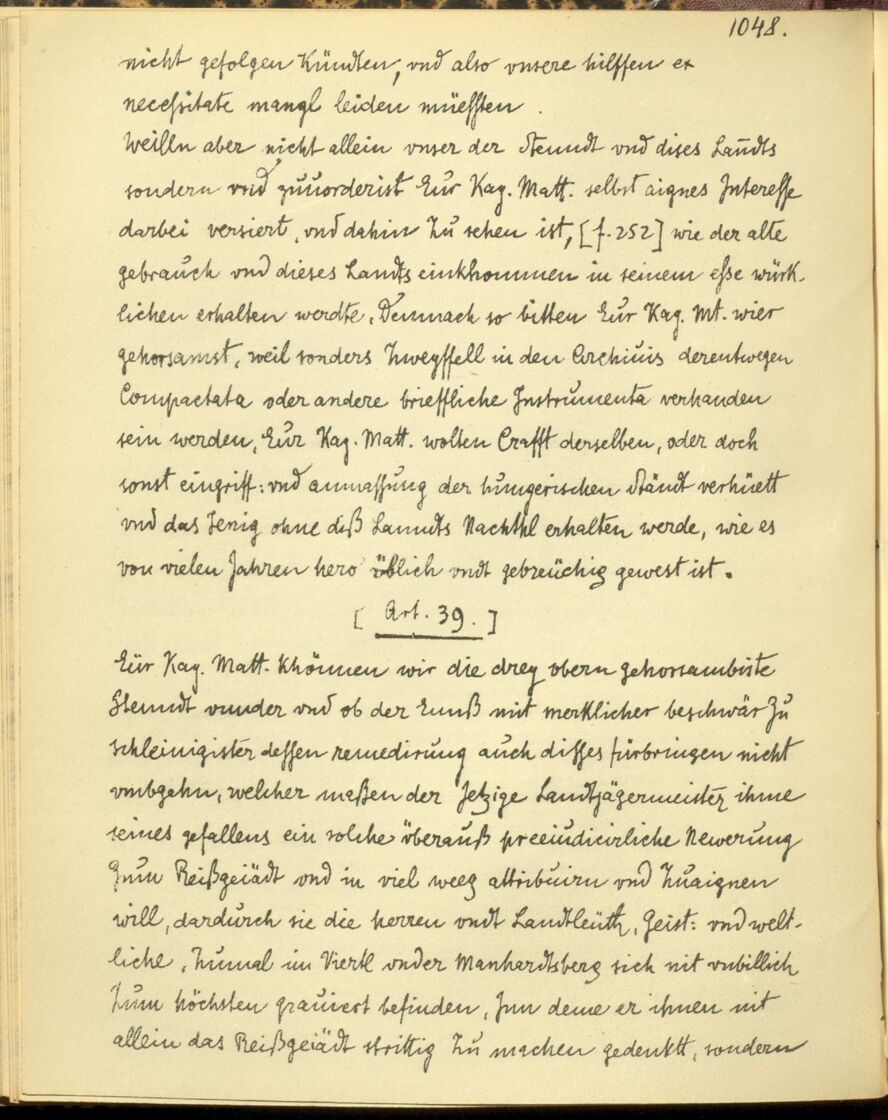 1048.
nicht gefolgen Kündten, vnd also vnsere hilffen ex
necessitate mangl leiden müessten.
Weilln aber nicht allein vnser der Stenndt vnd dises Landts
sondern vnd zuuorderist Eur Kay. Matt. selbst aignes Interesse
darbei versiert, vnd dahin Zu sehen ist, [f. 252] wie der alte
gebrauch vnd dieses Landts einkhommen in seinem esse würk-
lichen erhalten werdte, Demnach so bitten Eur Kay. Mt. wier
gehorsamst, weil sonders Zweyffell in den Archiuis derentwegen
Compactata oder andere brieffliche Instrumenta verhanden
sein werden, Eur Kay. Matt. wolten Crafft derselben, oder doch
sonst eingriff: vnd anmassung der hungerischen Ständt verhüett
vnd das Jenig ohne diß Lanndts Nachthl erhalten werde, wie es
von vielen Jahren hero üblich vndt gebreüchig gewest ist.
[Art. 39.]
Eür Kay. Matt. Khönnen wir die drey obern gehorsambiste
Stenndt vnnder vnd ob der Ennß mit merklicher beschwär Zu
schleinigister dessen remedirung auch disses fürbringen nicht
vmbgehn, welcher maßen der Jetzige Landtjägermeister ihme
seines gefallens ein solche überauß preeiudicirliche Newerung
Zum Reißgeiädt vnd in viel weeg attribuirn vnd Zuaignen
will, dardurch sie die herren vndt Landtleüth, Geist: vnd welt-
liche, Zumal im Viertl vnder Manhardtsberg sich nit vnbillich
Zum höchsten grauiert befinden, Inn deme er ihnen nit
allein das Reißgeiädt strittig Zu machen gedenkht, sondern